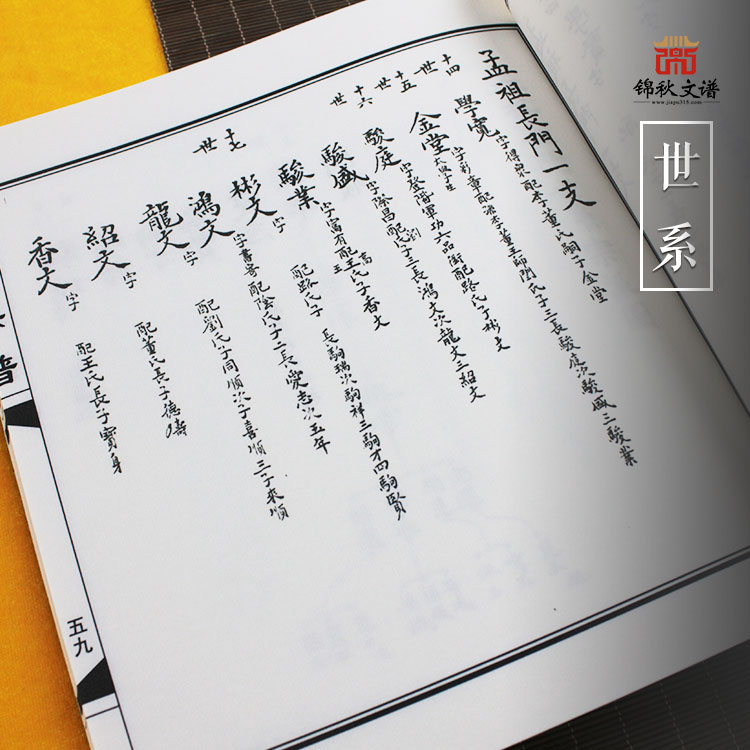 锦秋文谱
www.jiapu315.com
世系
孟祖長門一支
十四世
學寬 字得泉配李董氏嗣子金堂
十五世
金堂 太學生 字彩章配浴李董王師閆氏子三長駿庭次駿盛三駿業
十六世
駿庭 字登階軍功六品銜配路氏子彬文
駿盛 字際昌配劉氏子三長鴻文次龍文三紹文
駿業 字富有配高王氏子香文
十七世
彬文 字 配路氏子 長駒瑞次駒祥三駒才四駒賢
鴻文 字書考配陰氏子二長愛志次五年
龍文 字 配劉氏子同順次子喜順三子來順
紹文 字 配黃氏長子德濤
香文 字 配王氏長子寶身
譜
五九